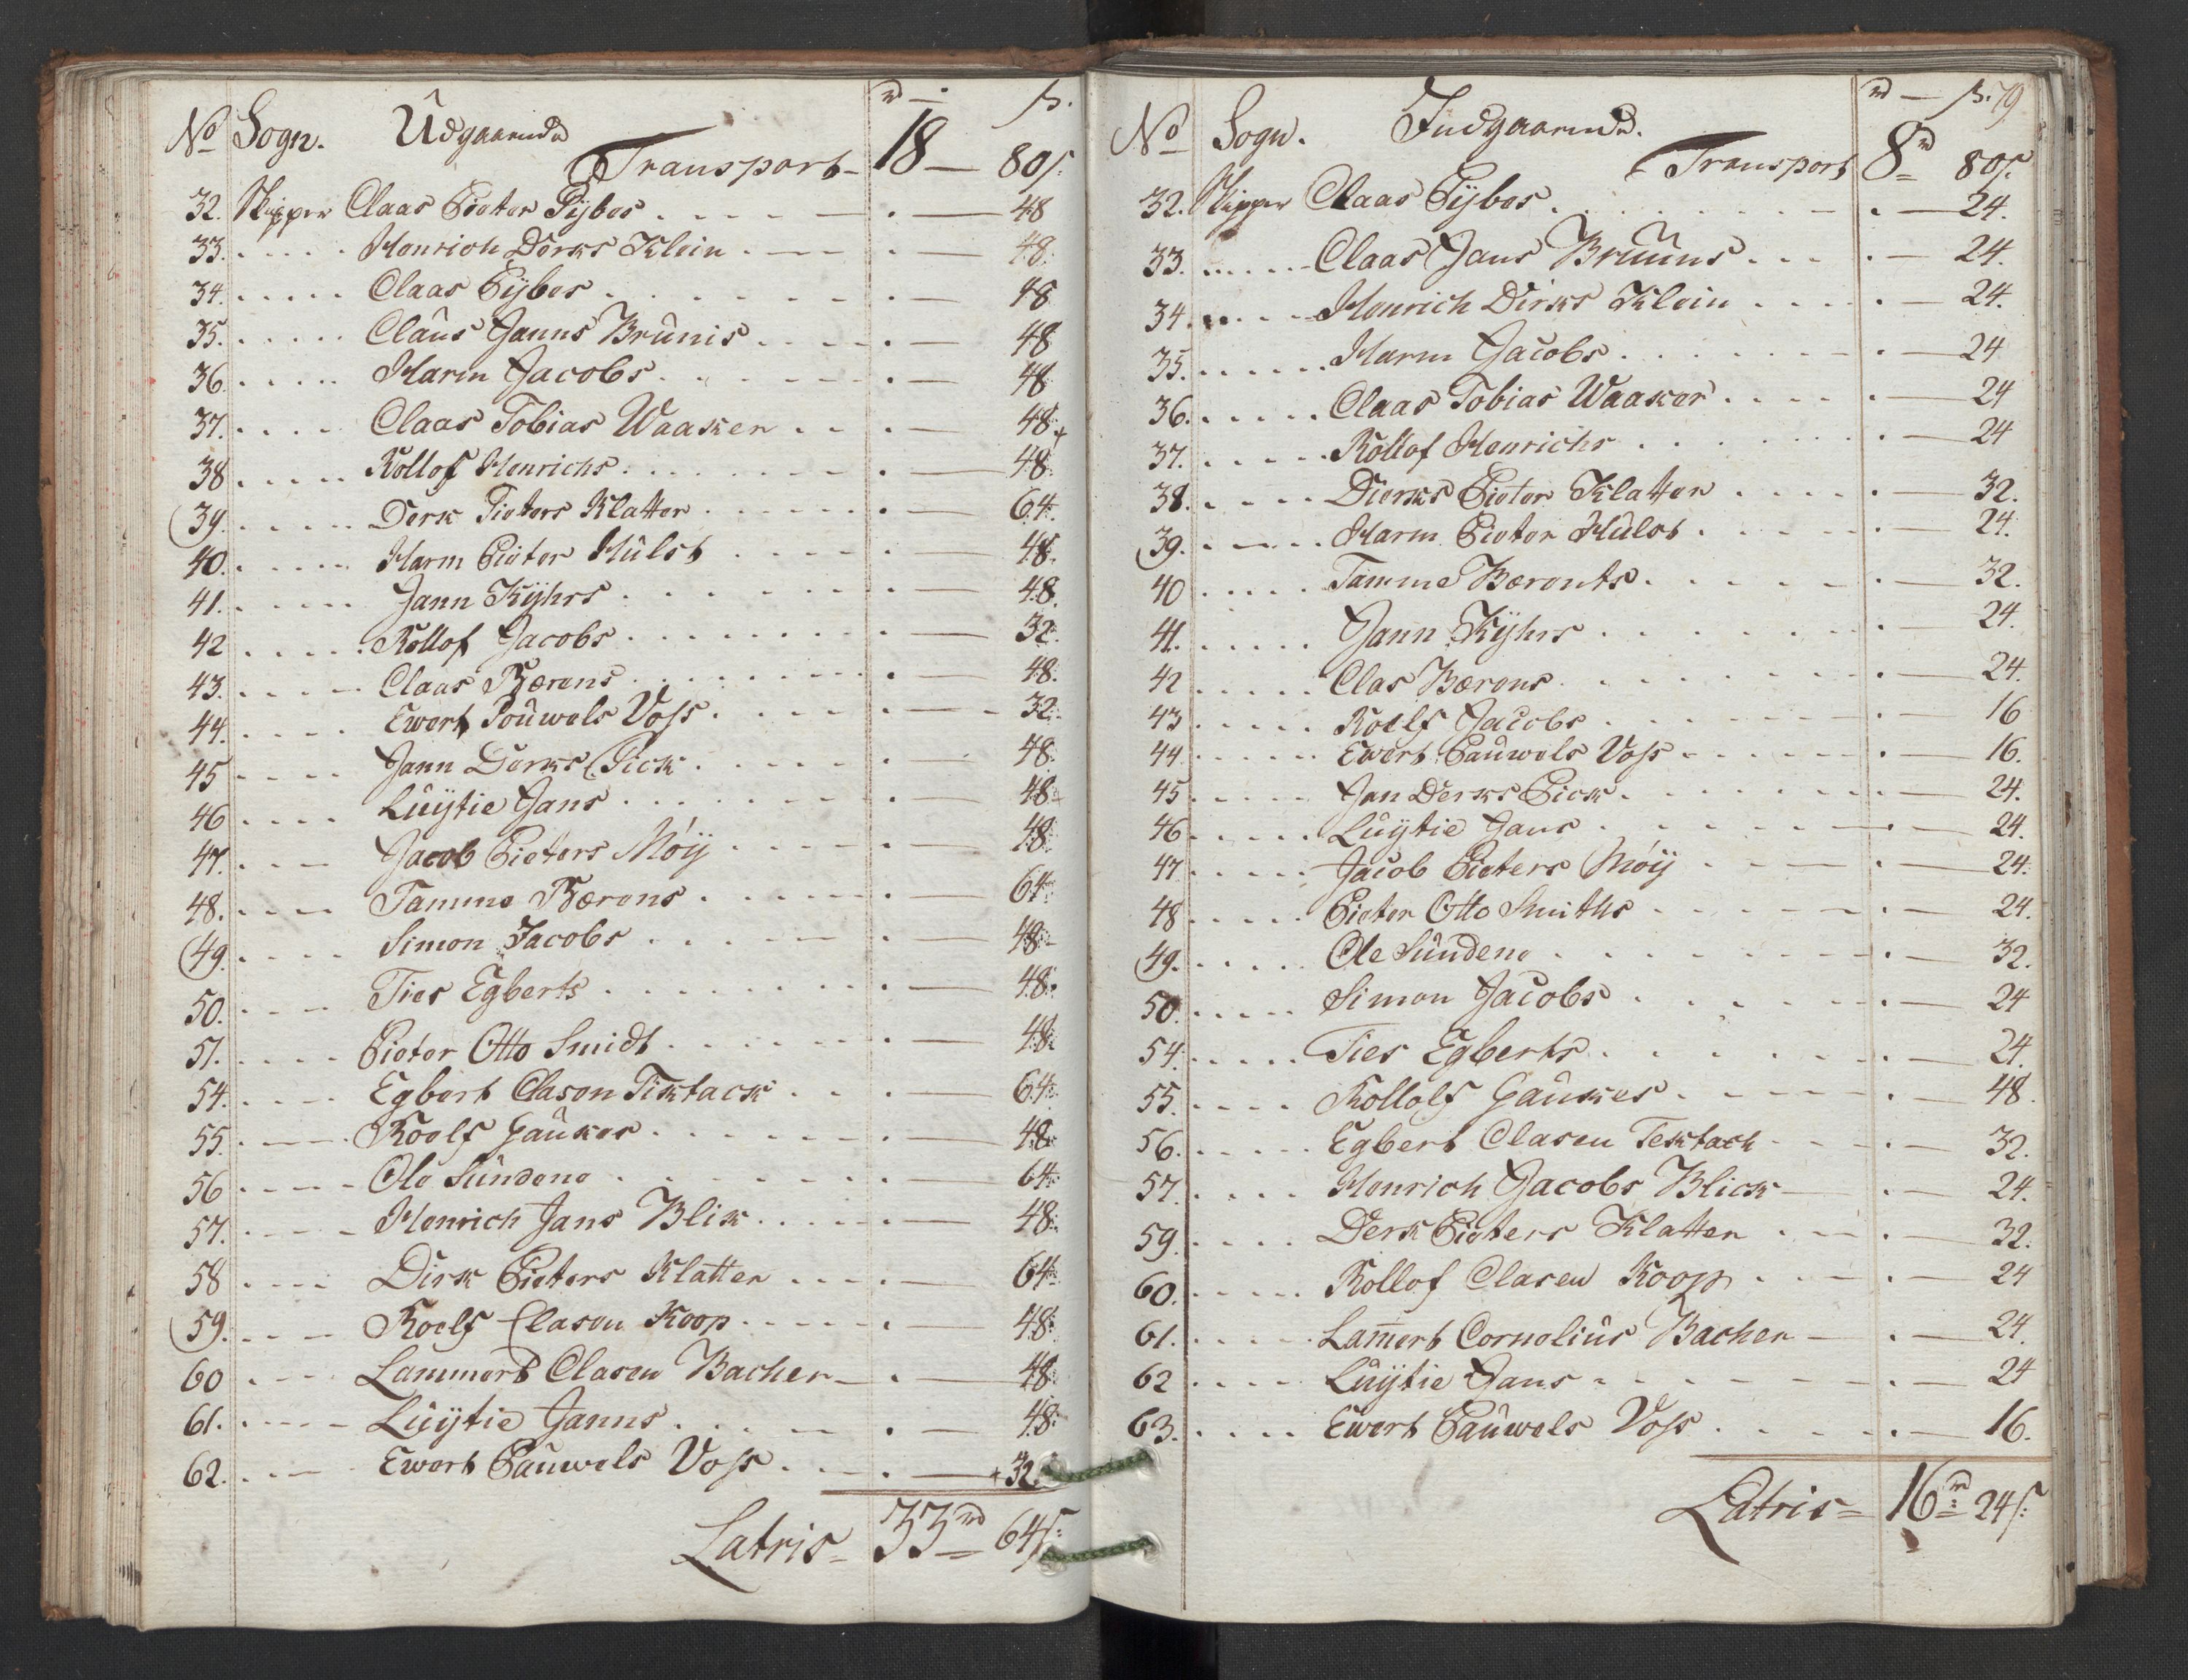 No Sogn. Udgaaende rd — ß.
Transport — 18 — 80ß.
32. Skipper Claas Pieter Pijbes . — 48
33. Henrich Derks Klein . — 48.
34. Claas Pijbes . — 48
35. Claus Janns Brunis . — 48
36. Harm Jacobs . — 48
37. Claas Tobias Waaker . — 48.
38 Rollof Henrichs . — 48.
39. Derk Pieters Klatter . — 64.
40. Harm Pieter Hulst . — 48.
41. Jann Kÿhrs . — 48.
42 Rollof Jacobs . — 32.
43. Claas Bærens . — 48.
44. Ewert Pouwels Voss . — 32.
45 Jann Derks Pick . — 48.
46 Luÿtie Jans . — 48
47. Jacob Pieters Móij . — 48.
48. Tamme Bærens . — 64.
49. Simon Jacobs . — 48
50. Ties Egberts . — 48.
51. Pieter Otto Smidt . — 48.
54. Egbert Clasen Tiktack . — 64.
55. Roelf Gaukes . — 48.
56 Ole Sundene . — 64.
57. Henrich Jans Blik . — 48.
58 Dirk Pieters Klatter . — 64.
59. Roelf Clasen Koop . — 48.
60 Lammert Clasen Backer . — 48
61. Luÿtie Janns . — 48.
62. Ewert Pauwels Voss . — 32.
Latris — 33 rd 64ß.
No Sogn. Indgaaende. rd — ß. 79
Transport 8 rd 80ß.
32. Skipper Claas Pijbes . — 24.
33. Claas Jans Bruuns . — 24.
34. Henrich Dirks Klein . — 24.
35. Harm Jacobs . — 24
36. Claas Tobias Waaker . — 24
37. Rollof Henrichs . — 24
38. Dierks Pieter Klatter . — 32.
39. Harm Pieter Hulst . — 24.
40 Tamme Bærents . — 32.
41. Jann Kÿhrs . 24.
42 Clas Bærens . — 24.
43 Roelf Jacobs . — 16
44 Ewert Pauwels Voss . — 16.
45 Jan Derks Pick . — 24.
46 Luÿtie Jans . — 24.
47 Jacob Pieters Móij . — 24.
48 Pieter Otto Smiths . — 24.
49. Ole Sundene . — 32.
50. Simon Jacobs . — 24
54. Ties Egberts . — 24.
55. Rollolf Gaukes . — 48.
56. Egbert Clasen Tektack . — 32.
57. Henrich Jacobs Blick . — 24.
59. Derk Pieters Klatter . — 32.
60. Rollof Clasen Koop . — 24
61. Lam̅ert Cornelius Backer . — 24.
62 Luÿtie Jans . — 24
63. Ewert Pauwels Voss . — 16.
Latris = 16 rd 24ß.